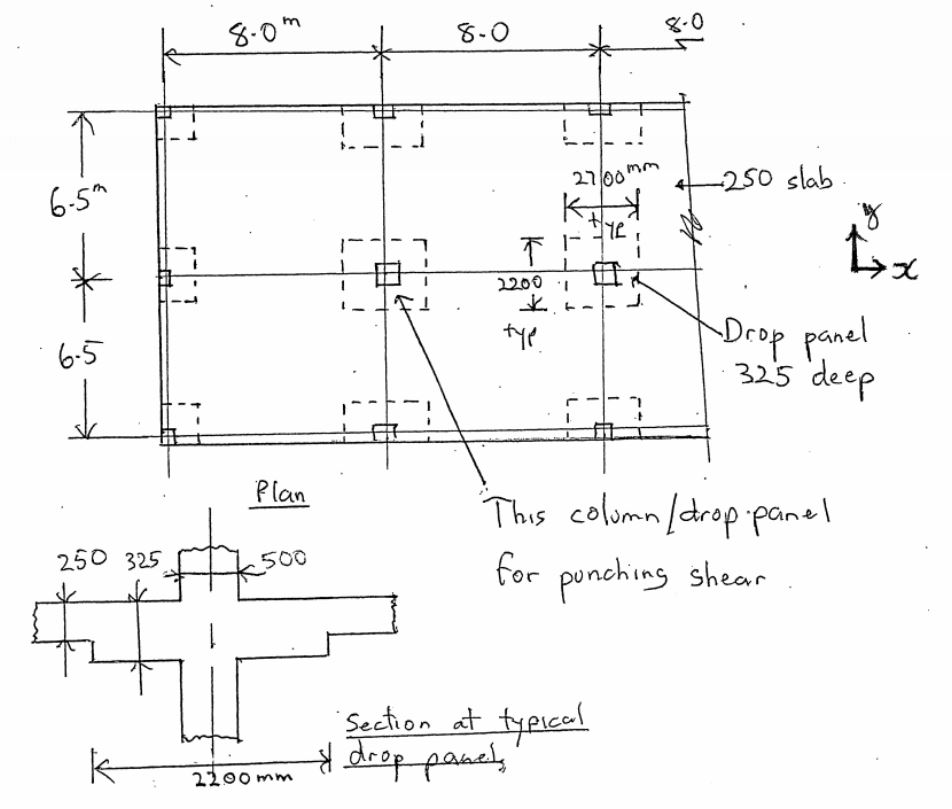 8.0 m
8.0
8.0
6.5 m
2700 mm
typ
250 slab
y
x
2200
typ
6.5
Drop panel
325 deep
Plan
This column/drop-panel
for punching shear.
250
325
500
Section at typical
drop panel,
2200 mm